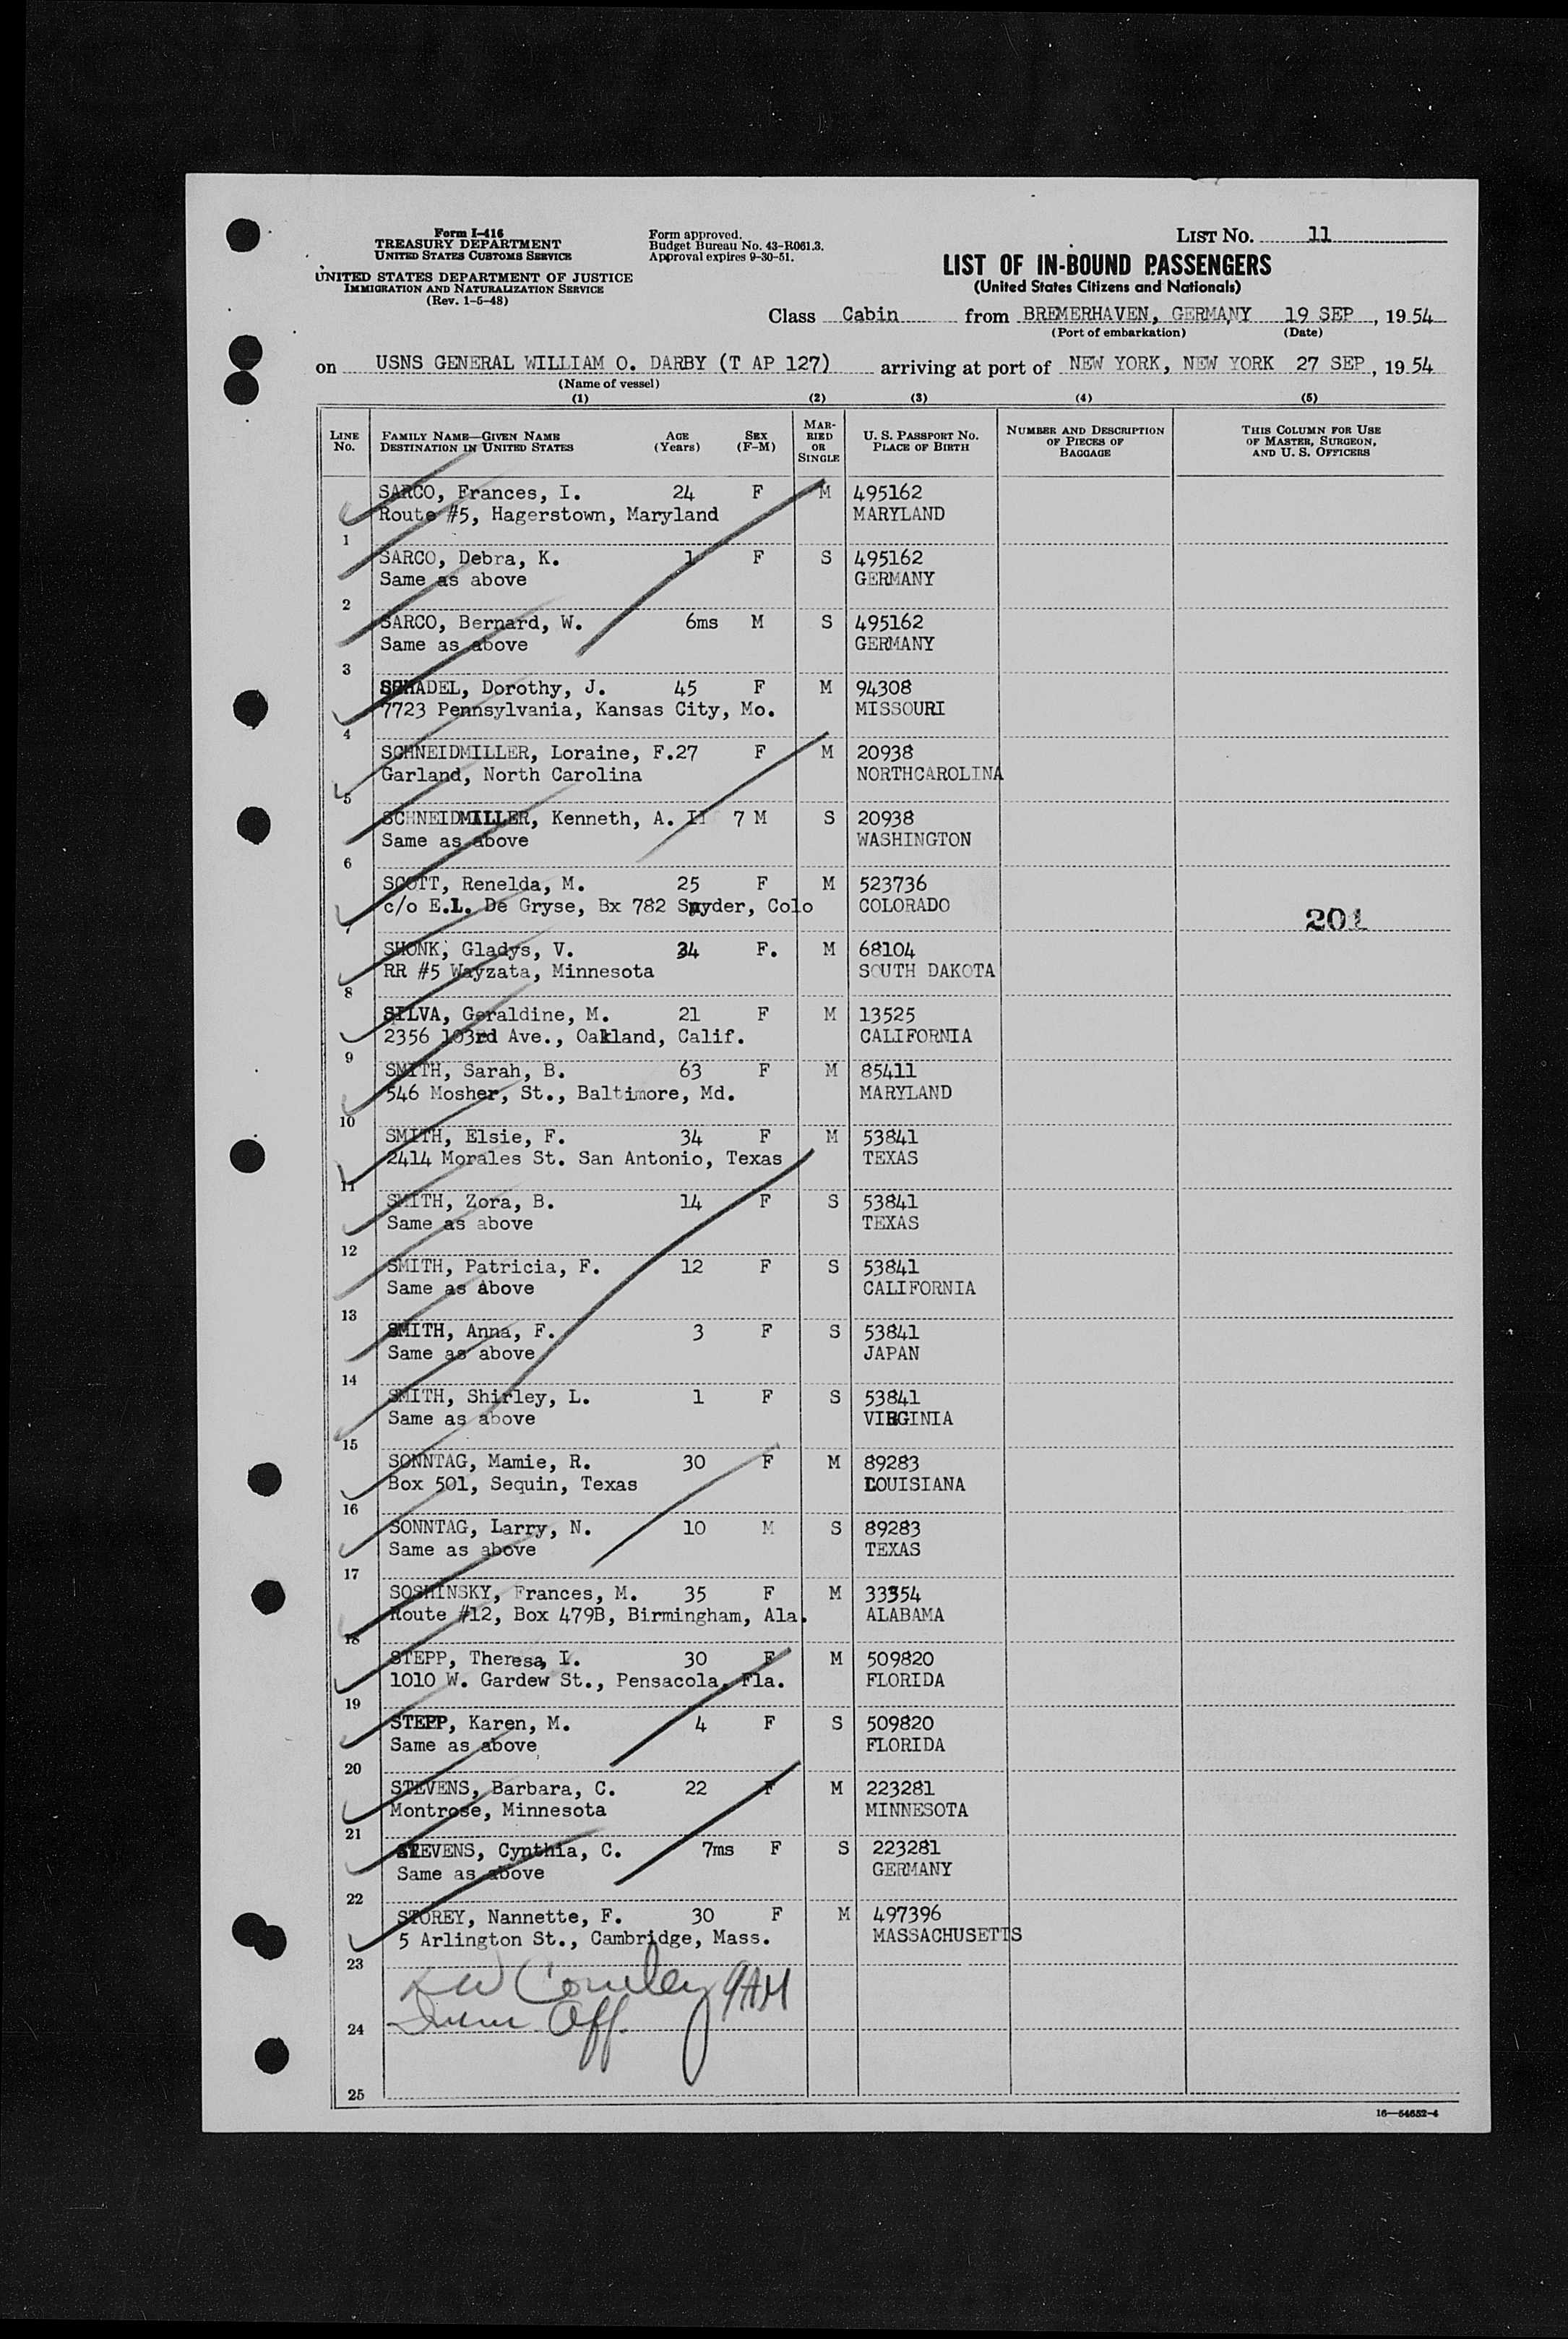 Form I-416
TREASURY DEPARTMENT
UNITED STATES CUSTOMS SERVICE
UNITED STATES DEPARTMENT OF JUSTICE
IMMIGRATION AND NATURALIZATION SERVICE
(Rev. 1-5-48)
Form approved.
Budget Bureau No. 43-R061.3.
Approval expires 9-30-51.
LIST NO. 11
LIST OF IN-BOUND PASSENGERS
(United States Citizens and Nationals)
Class Cabin from BREMERHAVEN, GERMANY 19 SEP, 1954
(Port of embarkation) (Date)
on USNS GENERAL WILLIAM O. DARBY (T AP 127) arriving at port of NEW YORK, NEW YORK 27 SEP, 1954
(Name of vessel)
(1) (2) (3) (4) (5)
LINE NO. FAMILY NAME—GIVEN NAME DESTINATION IN UNITED STATES AGE (Years) SEX (F-M) MARRIED OR SINGLE U. S. PASSPORT NO. PLACE OF BIRTH NUMBER AND DESCRIPTION OF PIECES OF BAGGAGE THIS COLUMN FOR USE OF MASTER, SURGEON, AND U. S. OFFICERS
SARCO, Frances, I. 24 F M 495162
Route #5, Hagerstown, Maryland MARYLAND
1
SARCO, Debra, K. 1 F S 495162
Same as above GERMANY
2
SARCO, Bernard, W. 6ms M S 495162
Same as above GERMANY
3
SCHADEL, Dorothy, J. 45 F M 94308
7723 Pennsylvania, Kansas City, Mo. MISSOURI
4
SCHNEIDMILLER, Loraine, F.27 F M 20938
Garland, North Carolina NORTHCAROLINA
5
SCHNEIDMILLER, Kenneth, A. II 7 M S 20938
Same as above WASHINGTON
6
SCOTT, Renelda, M. 25 F M 523736
c/o E.L. De Gryse, Bx 782 Snyder, Colo COLORADO
201
7
SHONK, Gladys, V. 34 F. M 68104
RR #5 Wayzata, Minnesota SOUTH DAKOTA
8
SILVA, Geraldine, M. 21 F M 13525
2356 103rd Ave., Oakland, Calif. CALIFORNIA
9
SMITH, Sarah, B. 63 F M 85411
546 Mosher, St., Baltimore, Md. MARYLAND
10
SMITH, Elsie, F. 34 F M 53841
2414 Morales St. San Antonio, Texas TEXAS
11
SMITH, Zora, B. 14 F S 53841
Same as above TEXAS
12
SMITH, Patricia, F. 12 F S 53841
Same as above CALIFORNIA
13
SMITH, Anna, F. 3 F S 53841
Same as above JAPAN
14
SMITH, Shirley, L. 1 F S 53841
Same as above VIRGINIA
15
SONNTAG, Mamie, R. 30 F M 89283
Box 501, Sequin, Texas LOUISIANA
16
SONNTAG, Larry, N. 10 M S 89283
Same as above TEXAS
17
SOSHINSKY, Frances, M. 35 F M 33354
Route #12, Box 479B, Birmingham, Ala. ALABAMA
18
STEPP, Theresa, I. 30 F M 509820
1010 W. Gardew St., Pensacola, Fla. FLORIDA
19
STEPP, Karen, M. 4 F S 509820
Same as above FLORIDA
20
STEVENS, Barbara, C. 22 F M 223281
Montrose, Minnesota MINNESOTA
21
STEVENS, Cynthia, C. 7ms F S 223281
Same as above GERMANY
22
STOREY, Nannette, F. 30 F M 497396
5 Arlington St., Cambridge, Mass. MASSACHUSETTS
23
Off.
24
25
16—54652-4